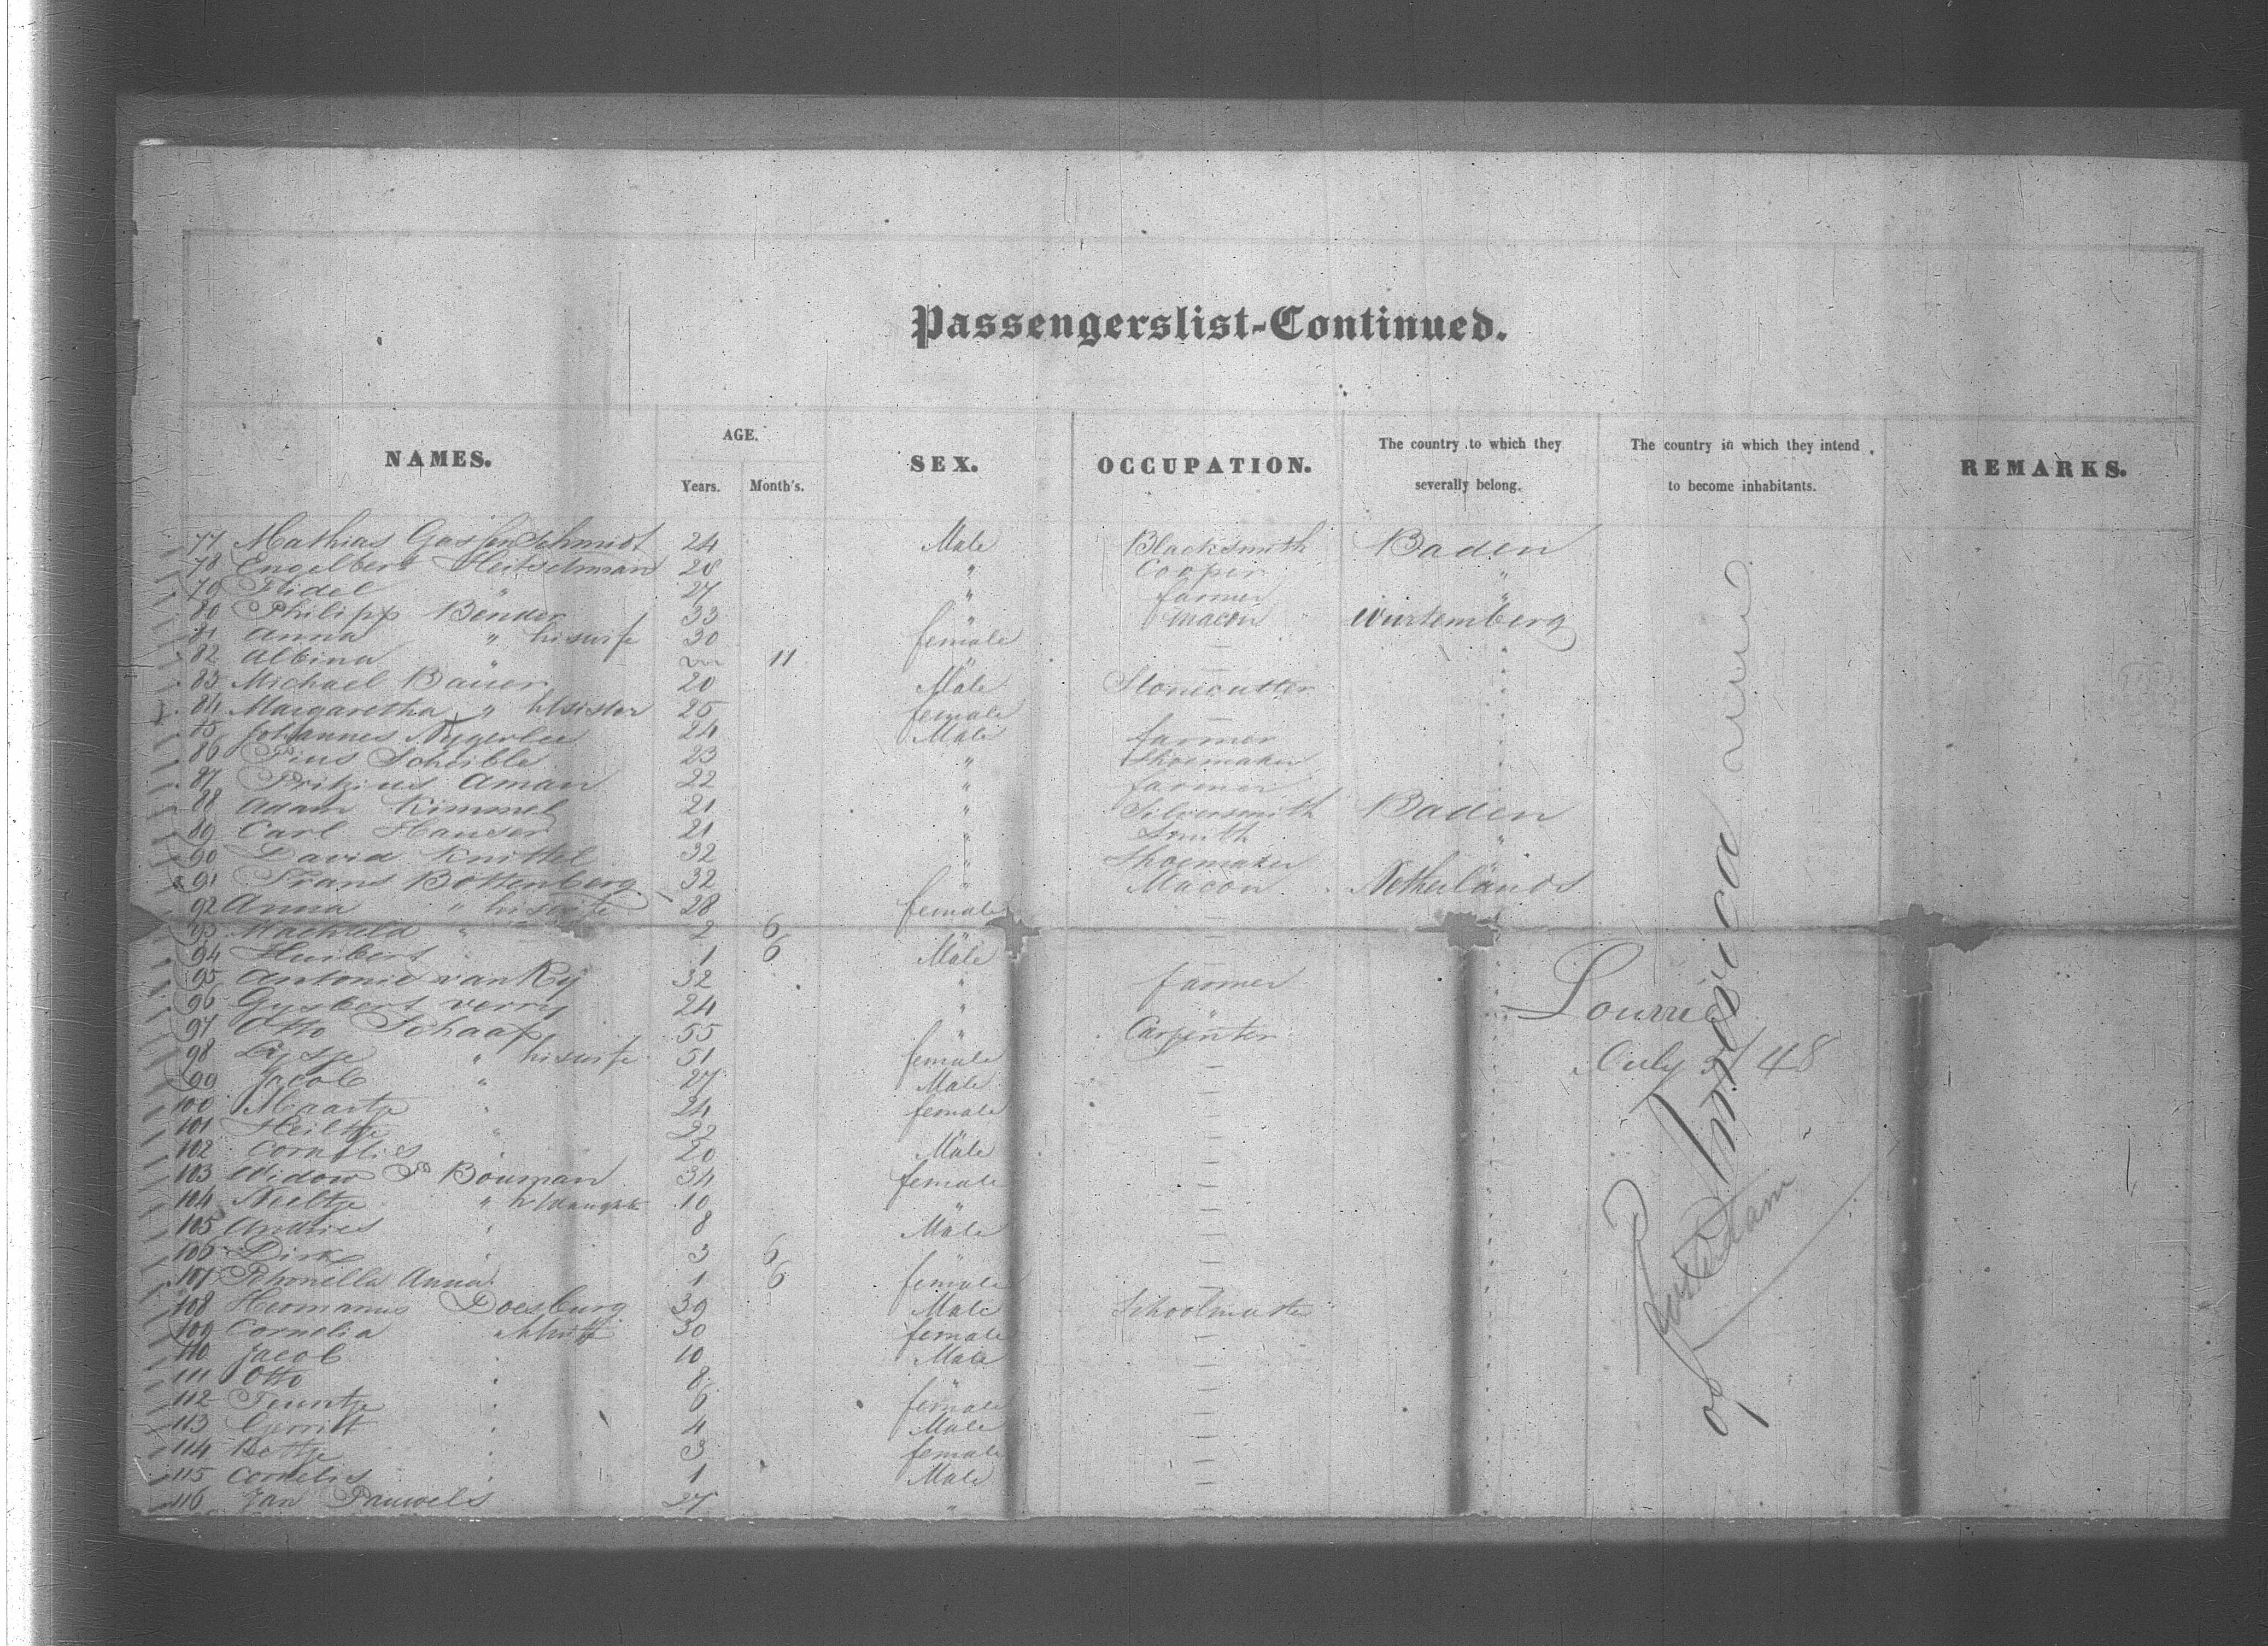 Passengerslist-Continued.
NAMES. AGE. SEX. OCCUPATION. The country to which they severally belong. The country in which they intend to become inhabitants. REMARKS.
Years. Month's.
77 Mathias Gassenschmidt 24 Male Blacksmith Baden
78 Engelbert Heitzelman 28 " Cooper "
79 Fidel " 27 " farmer "
80 Philipp Bender 33 " Macon Wurtemberg
81 Anna " his wife 30 female — "
82 Albina " 11 " — "
83 Michael Bauer 20 Male Stonecutter "
84 Margaretha " h/sister 25 female — "
85 Johannes 24 Male farmer "
86 Pius Scheible 23 " Shoemaker "
87 Aman 22 " farmer
88 Adam Kimmel 21 " Silversmith Baden
89 Carl Hauser 21 " Smith "
90 David Knittel 32 " Shoemaker "
91 Frans Bottenberg 32 " Macon Netherlands
92 Anna " his wife 28 female —
93 " 2 6 " —
94 Huibert " 1 6 Male —
95 Antonie van Ry 32 " farmer
96 Gysbert 24 " "
97 Otto Schaap 55 " Carpenter
98 " his wife 51 female —
99 Jacob " 27 Male —
100 Maartje " 24 female —
101 " 22 " —
102 Cornelis " 20 Male —
103 Widow P Bouman 34 female —
104 Neeltje " h/daught 10 " —
105 Andries " 8 Male —
106 Dirk " 3 6 " —
107 Petronella Anna " 1 6 female —
108 Hermanus Doesburg 39 Male Schoolmaster
109 Cornelia " h/wife 30 female —
110 Jacob " 10 Male —
111 Otto " 8 " —
112 Teuntje " 6 female —
113 Gerrit " 4 Male —
114 " 3 female —
115 Cornelis " 1 Male —
116 Jan Pauwels 27 " —
America
July 48
of Rotterdam